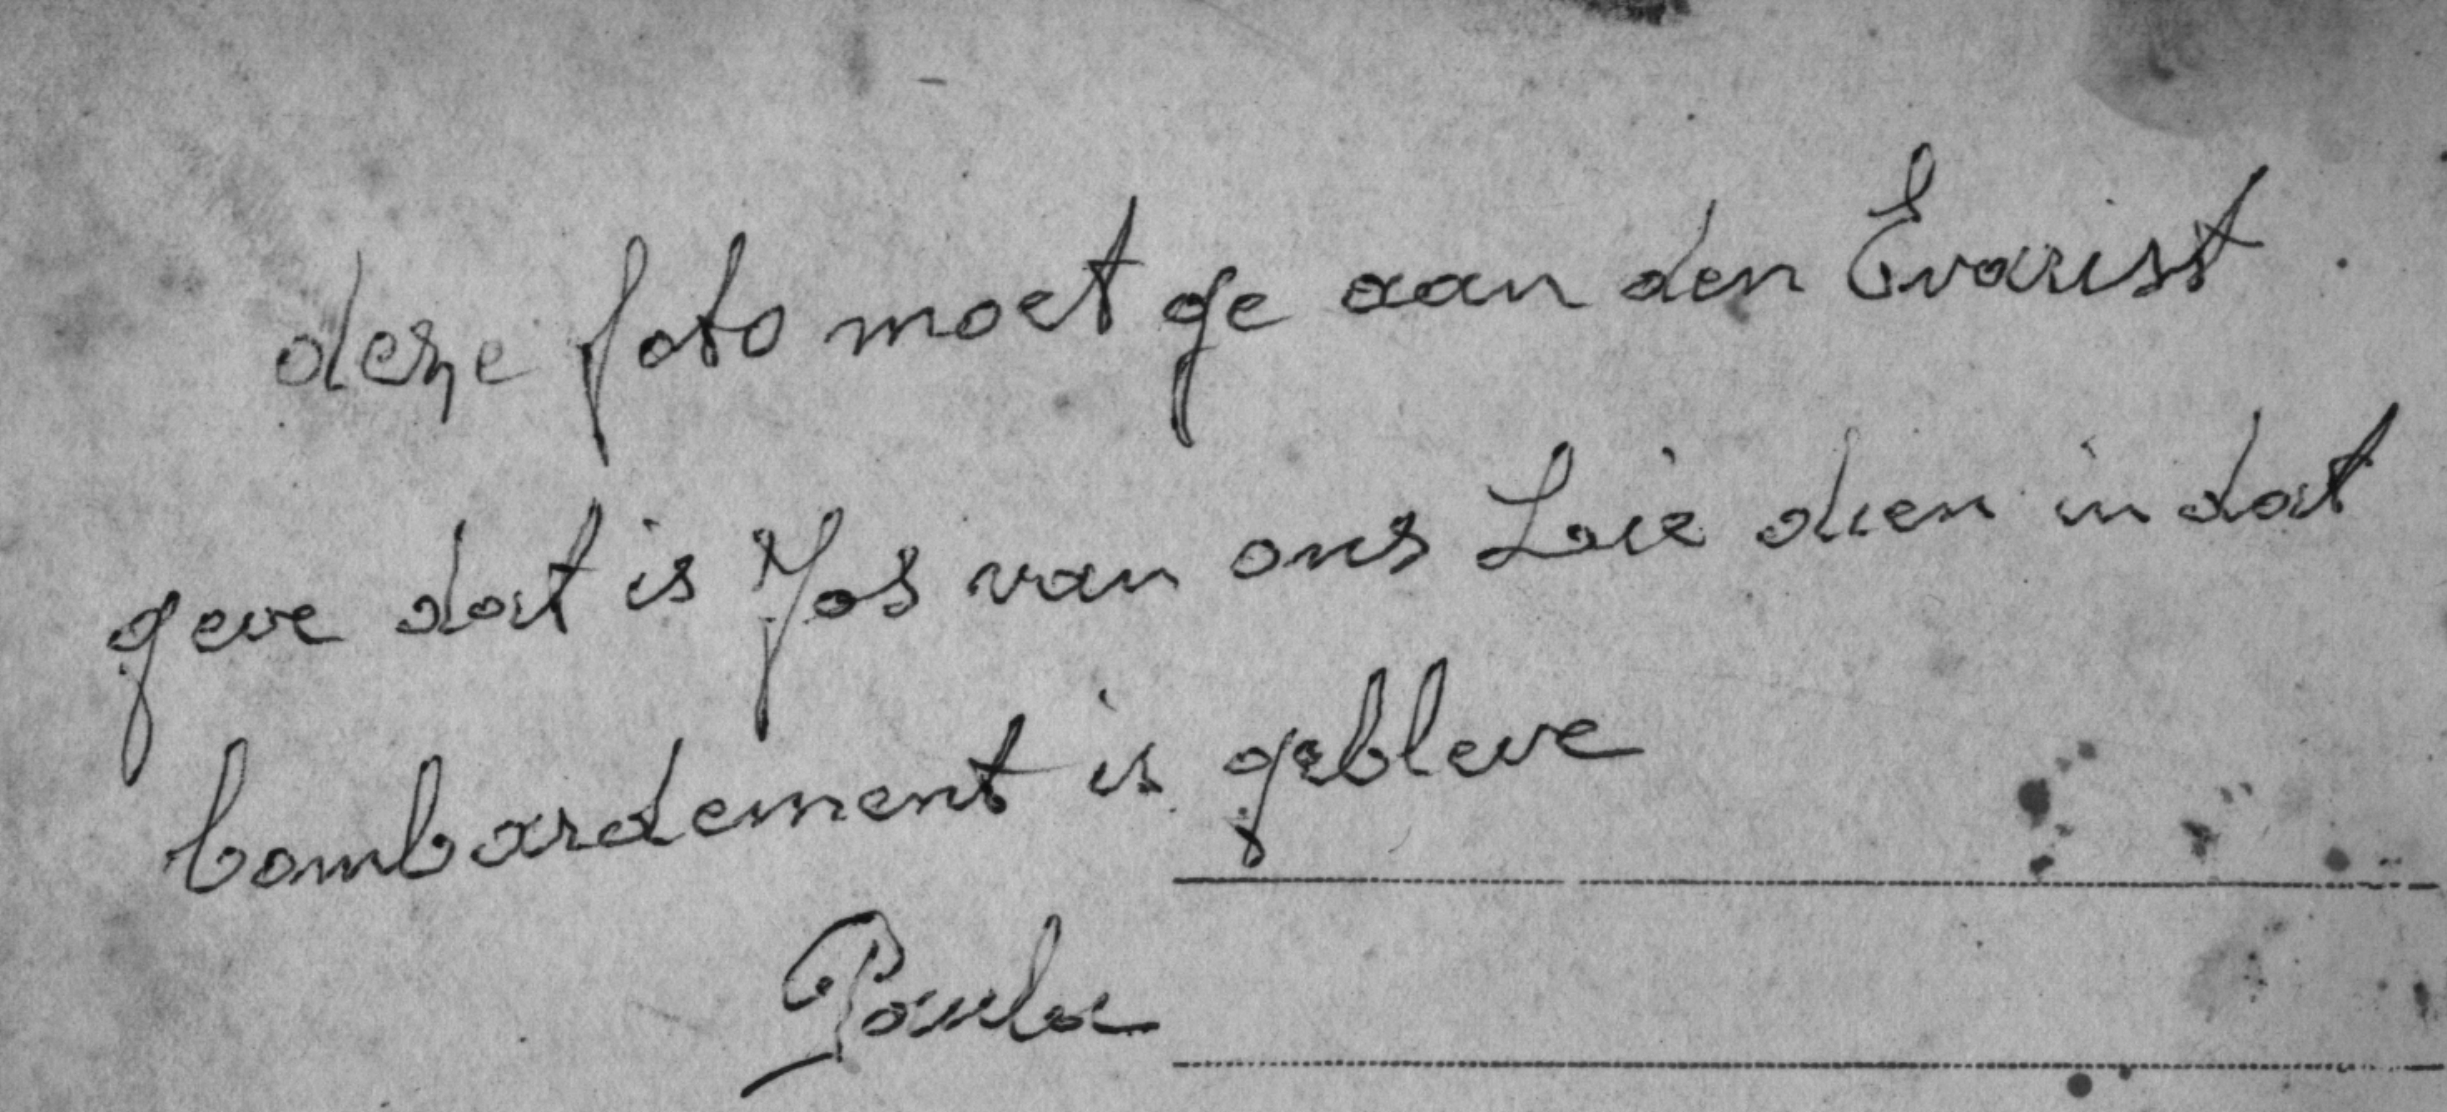 deze foto moet ge aan den Evarist
geve dat is Jos van ons Loie dien in dat
bombardement is gebleve
Paula